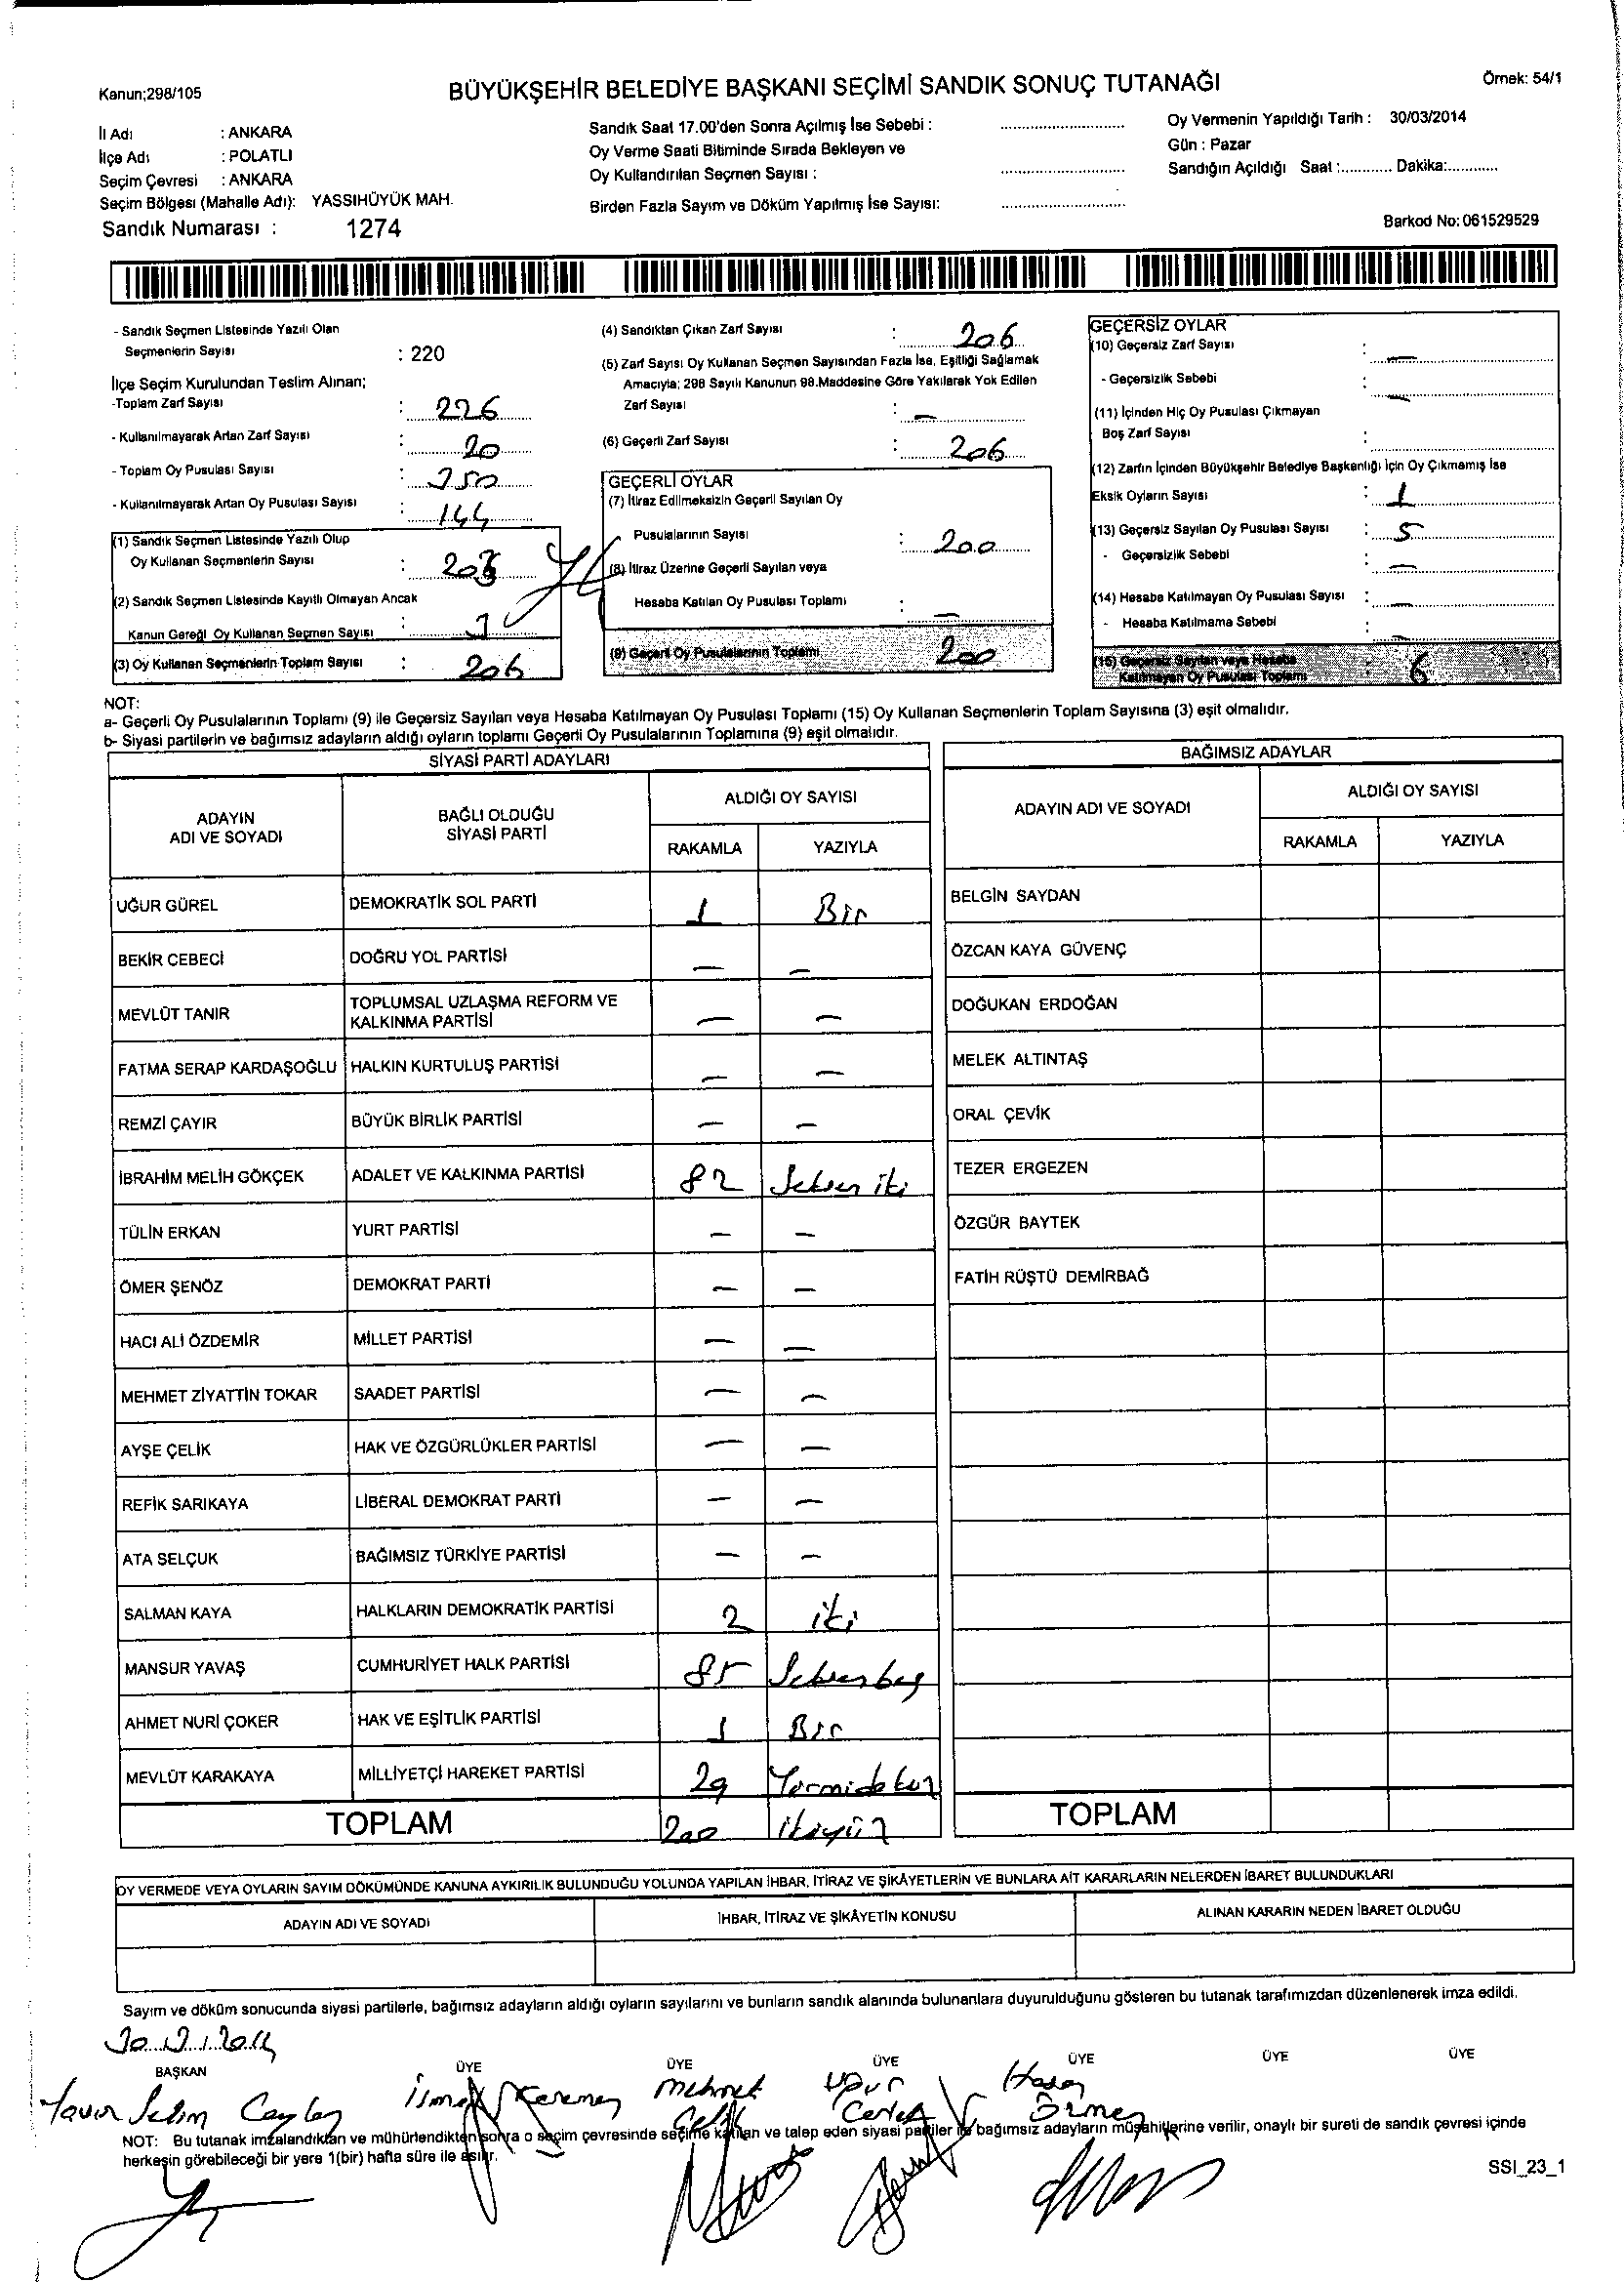 Kanun;298/105
BÜYÜKŞEHİR BELEDİYE BAŞKANI SEÇİMİ SANDIK SONUÇ TUTANAĞI
Örnek: 54/1
İl Adı : ANKARA
İlçe Adı : POLATLI
Seçim Çevresi : ANKARA
Seçim Bölgesi (Mahalle Adı): YASSIHÜYÜK MAH.
Sandık Numarası : 1274
Sandık Saat 17.00'den Sonra Açılmış İse Sebebi :
Oy Verme Saati Bitiminde Sırada Bekleyen ve
Oy Kullandırılan Seçmen Sayısı :
Birden Fazla Sayım ve Döküm Yapılmış İse Sayısı:
Oy Vermenin Yapıldığı Tarih : 30/03/2014
Gün : Pazar
Sandığın Açıldığı Saat :............ Dakika:............
Barkod No: 061529529
- Sandık Seçmen Listesinde Yazılı Olan
Seçmenlerin Sayısı : 220
İlçe Seçim Kurulundan Teslim Alınan;
-Toplam Zarf Sayısı : 226
- Kullanılmayarak Artan Zarf Sayısı : 20
- Toplam Oy Pusulası Sayısı : 350
- Kullanılmayarak Artan Oy Pusulası Sayısı : 144
(1) Sandık Seçmen Listesinde Yazılı Olup
Oy Kullanan Seçmenlerin Sayısı :
(2) Sandık Seçmen Listesinde Kayıtlı Olmayan Ancak
Kanun Gereği Oy Kullanan Seçmen Sayısı :
(3) Oy Kullanan Seçmenlerin Toplam Sayısı : 206
(4) Sandıktan Çıkan Zarf Sayısı : 206
(5) Zarf Sayısı Oy Kullanan Seçmen Sayısından Fazla İse, Eşitliği Sağlamak
Amacıyla; 298 Sayılı Kanunun 98.Maddesine Göre Yakılarak Yok Edilen
Zarf Sayısı : —
(6) Geçerli Zarf Sayısı : 206
GEÇERLİ OYLAR
(7) İtiraz Edilmeksizin Geçerli Sayılan Oy
Pusulalarının Sayısı : 200
(8) İtiraz Üzerine Geçerli Sayılan veya
Hesaba Katılan Oy Pusulası Toplamı : —
(9) Geçerli Oy Pusulalarının Toplamı 200
GEÇERSİZ OYLAR
(10) Geçersiz Zarf Sayısı : —
- Geçersizlik Sebebi : —
(11) İçinden Hiç Oy Pusulası Çıkmayan
Boş Zarf Sayısı :
(12) Zarfın İçinden Büyükşehir Belediye Başkanlığı İçin Oy Çıkmamış İse
Eksik Oyların Sayısı : 1
(13) Geçersiz Sayılan Oy Pusulası Sayısı : 5
- Geçersizlik Sebebi : —
(14) Hesaba Katılmayan Oy Pusulası Sayısı : —
- Hesaba Katılmama Sebebi : —
(15) Geçersiz Sayılan veya Hesaba
Katılmayan Oy Pusulası Toplamı : 6
NOT:
a- Geçerli Oy Pusulalarının Toplamı (9) ile Geçersiz Sayılan veya Hesaba Katılmayan Oy Pusulası Toplamı (15) Oy Kullanan Seçmenlerin Toplam Sayısına (3) eşit olmalıdır.
b- Siyasi partilerin ve bağımsız adayların aldığı oyların toplamı Geçerli Oy Pusulalarının Toplamına (9) eşit olmalıdır.
SİYASİ PARTİ ADAYLARI
ADAYIN ADI VE SOYADI BAĞLI OLDUĞU SİYASİ PARTİ ALDIĞI OY SAYISI
RAKAMLA YAZIYLA
UĞUR GÜREL DEMOKRATİK SOL PARTİ 1 Bir
BEKİR CEBECİ DOĞRU YOL PARTİSİ — —
MEVLÜT TANIR TOPLUMSAL UZLAŞMA REFORM VE KALKINMA PARTİSİ — —
FATMA SERAP KARDAŞOĞLU HALKIN KURTULUŞ PARTİSİ — —
REMZİ ÇAYIR BÜYÜK BİRLİK PARTİSİ — —
İBRAHİM MELİH GÖKÇEK ADALET VE KALKINMA PARTİSİ 82 Seksen iki
TÜLİN ERKAN YURT PARTİSİ — —
ÖMER ŞENÖZ DEMOKRAT PARTİ — —
HACI ALİ ÖZDEMİR MİLLET PARTİSİ — —
MEHMET ZİYATTİN TOKAR SAADET PARTİSİ — —
AYŞE ÇELİK HAK VE ÖZGÜRLÜKLER PARTİSİ — —
REFİK SARIKAYA LİBERAL DEMOKRAT PARTİ — —
ATA SELÇUK BAĞIMSIZ TÜRKİYE PARTİSİ — —
SALMAN KAYA HALKLARIN DEMOKRATİK PARTİSİ 2 iki
MANSUR YAVAŞ CUMHURİYET HALK PARTİSİ 85 Seksenbeş
AHMET NURİ ÇOKER HAK VE EŞİTLİK PARTİSİ 1 Bir
MEVLÜT KARAKAYA MİLLİYETÇİ HAREKET PARTİSİ 29 Yirmidokuz
TOPLAM 200 ikiyüz
BAĞIMSIZ ADAYLAR
ADAYIN ADI VE SOYADI ALDIĞI OY SAYISI
RAKAMLA YAZIYLA
BELGİN SAYDAN
ÖZCAN KAYA GÜVENÇ
DOĞUKAN ERDOĞAN
MELEK ALTINTAŞ
ORAL ÇEVİK
TEZER ERGEZEN
ÖZGÜR BAYTEK
FATİH RÜŞTÜ DEMİRBAĞ
TOPLAM
OY VERMEDE VEYA OYLARIN SAYIM DÖKÜMÜNDE KANUNA AYKIRILIK BULUNDUĞU YOLUNDA YAPILAN İHBAR, İTİRAZ VE ŞİKÂYETLERİN VE BUNLARA AİT KARARLARIN NELERDEN İBARET BULUNDUKLARI
ADAYIN ADI VE SOYADI İHBAR, İTİRAZ VE ŞİKÂYETİN KONUSU ALINAN KARARIN NEDEN İBARET OLDUĞU
Sayım ve döküm sonucunda siyasi partilerle, bağımsız adayların aldığı oyların sayılarını ve bunların sandık alanında bulunanlara duyurulduğunu gösteren bu tutanak tarafımızdan düzenlenerek imza edildi.
30.3.2014
BAŞKAN ÜYE ÜYE ÜYE ÜYE ÜYE ÜYE
Yavuz Selim Mehmet Uğur Hasan
NOT: Bu tutanak imzalandıktan ve mühürlendikten sonra o seçim çevresinde seçime katılan ve talep eden siyasi partiler ile bağımsız adayların müşahitlerine verilir, onaylı bir sureti de sandık çevresi içinde
herkesin görebileceği bir yere 1(bir) hafta süre ile asılır.
SSI_23_1